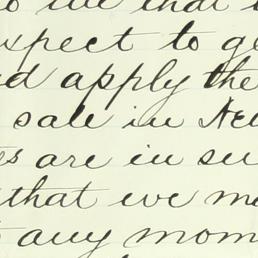 that
expect to ge
apply the
sale in New
es are in su
that we ma
any mom